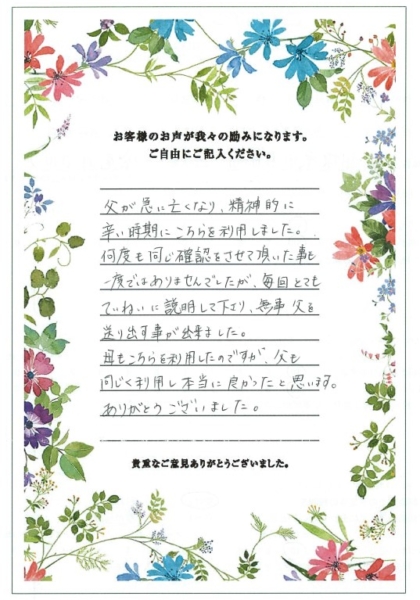 お客様のお声が我々の励みになります。
ご自由にご記入ください。
父が急に亡くなり、精神的に
辛い時期にこちらを利用しました。
何度も同じ確認をさせて頂いた事も
一度ではありませんでしたが、毎回とても
ていねいに説明して下さり、無事父を
送り出す事が出来ました。
母もこちらを利用したのですが、父も
同じく利用し本当に良かったと思います。
ありがとうございました。
貴重なご意見ありがとうございました。